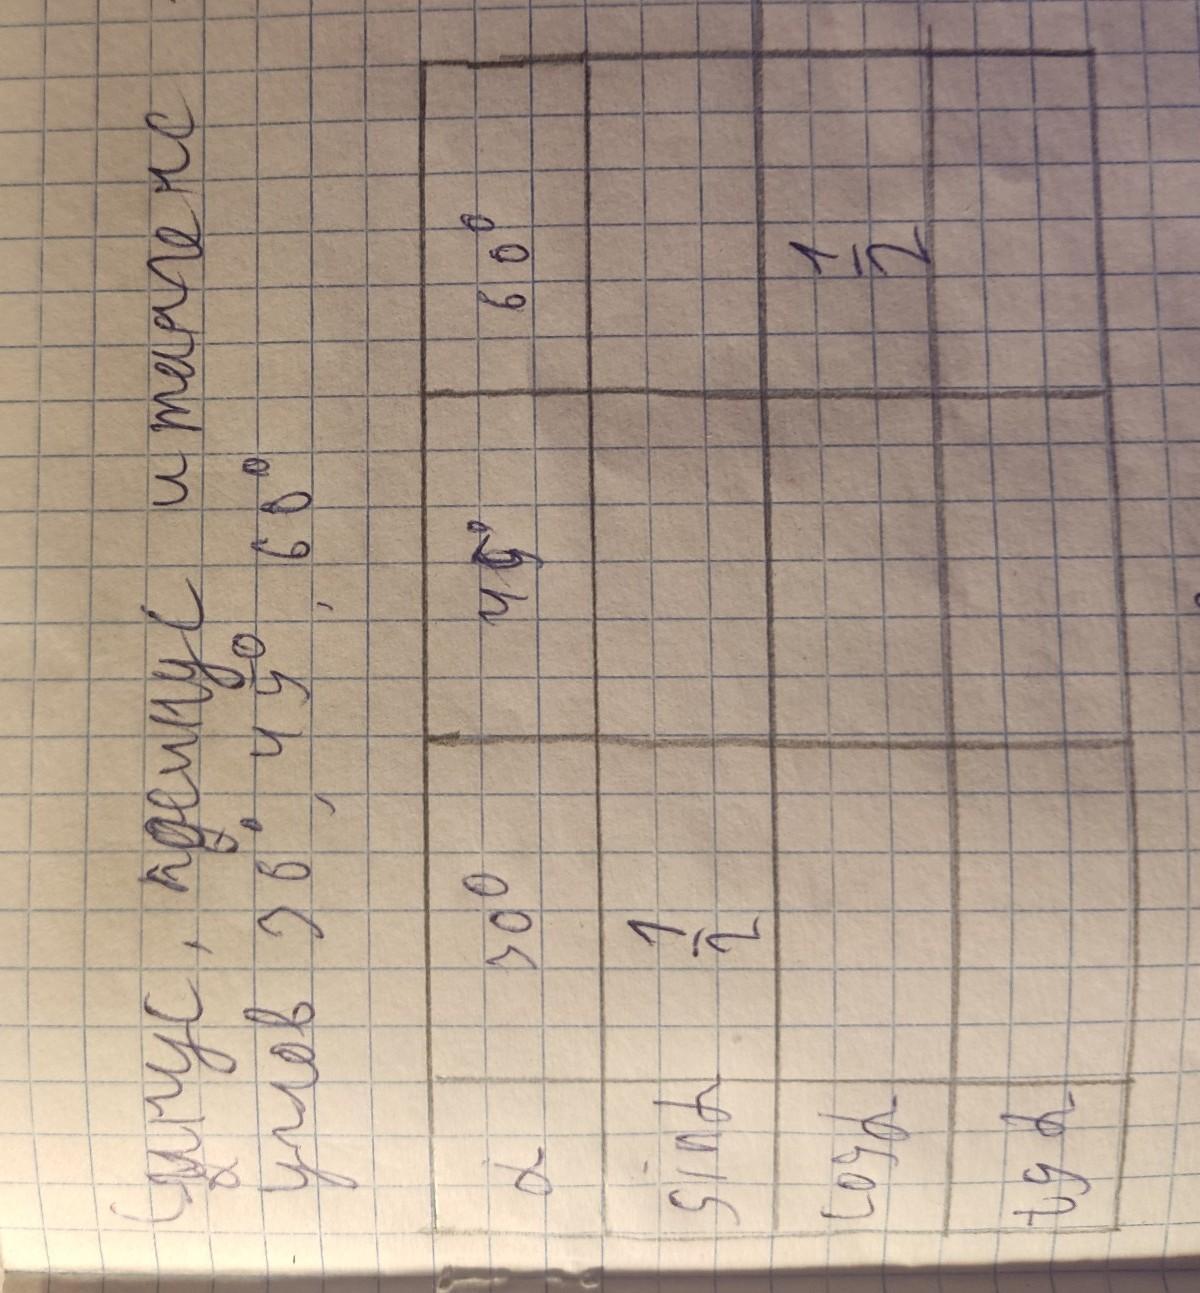 Синус, косинус и тангенс
углов 30°, 45°, 60°
α 30° 45° 60°
sinα 1/2
cosα 1/2
tg α